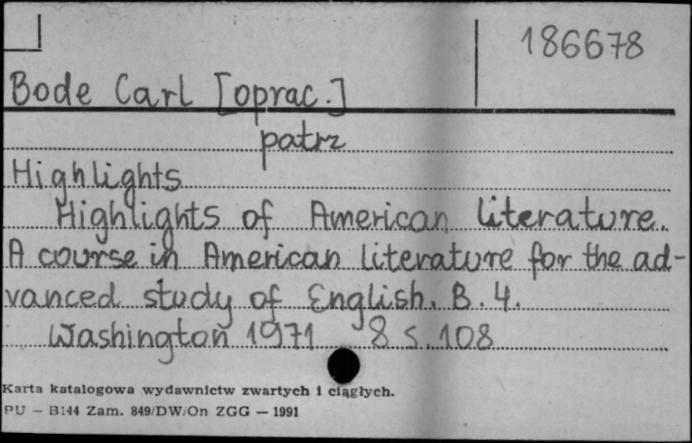 186678
Bode Carl [oprac.]
patrz
Highlights
Highlights of American literature.
A course in American literature for the ad-
vanced study of English. B. 4.
Washington 1971 8 s. 108
Karta katalogowa wydawnictw zwartych i ciągłych.
PU – B144 Zam. 849/DW/On ZGG – 1991